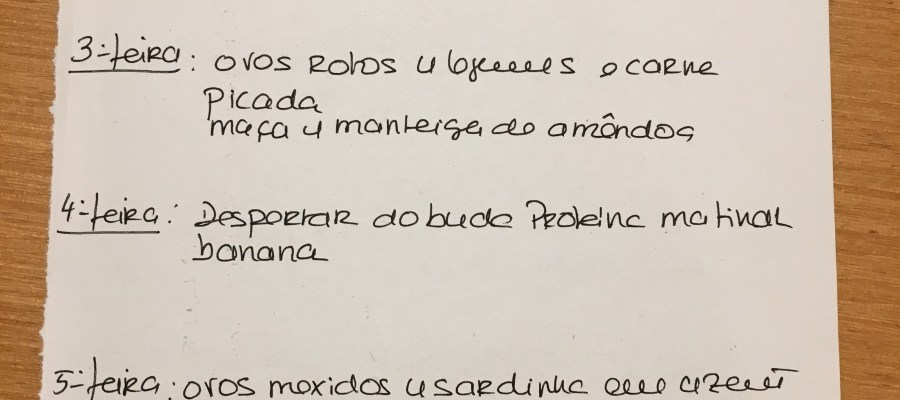 3ª-feira: ovos Rotos c/ legumes e carne
Picada
maça c/ manteiga de amêndoa
4ª-feira: Despertar do buda Proteina matinal
banana
5ª-feira: ovos mexidos c/ sardinha em azeite